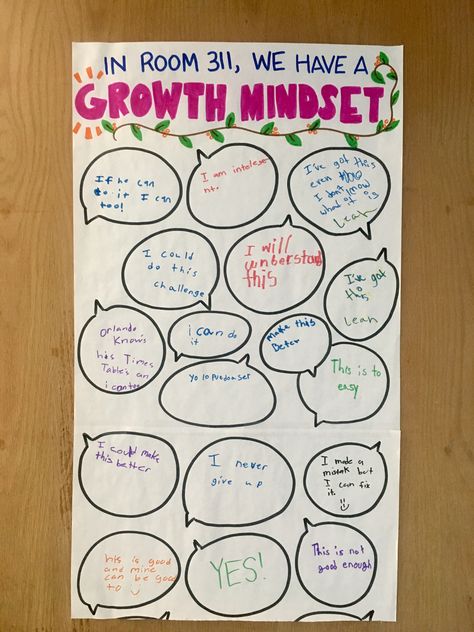 IN ROOM 311, WE HAVE A
GROWTH MINDSET
If he can
do it I can
too!
I am intelese
nt.
I've got this
even
I don't know
what it is
Leah
I could
do this
challenge
I will
unberstand
this
I've got
this
Leah
Orlando
Knows
his Times
Tables an
i can too
i can do
it
make this
Beter
Yo lo puedo ser
This is to
easy
I could make
this better
I never
give up
I made a
mistak but
I can fix
it.
This is not
good enough
this is good
and mine
can be good
to
YES!